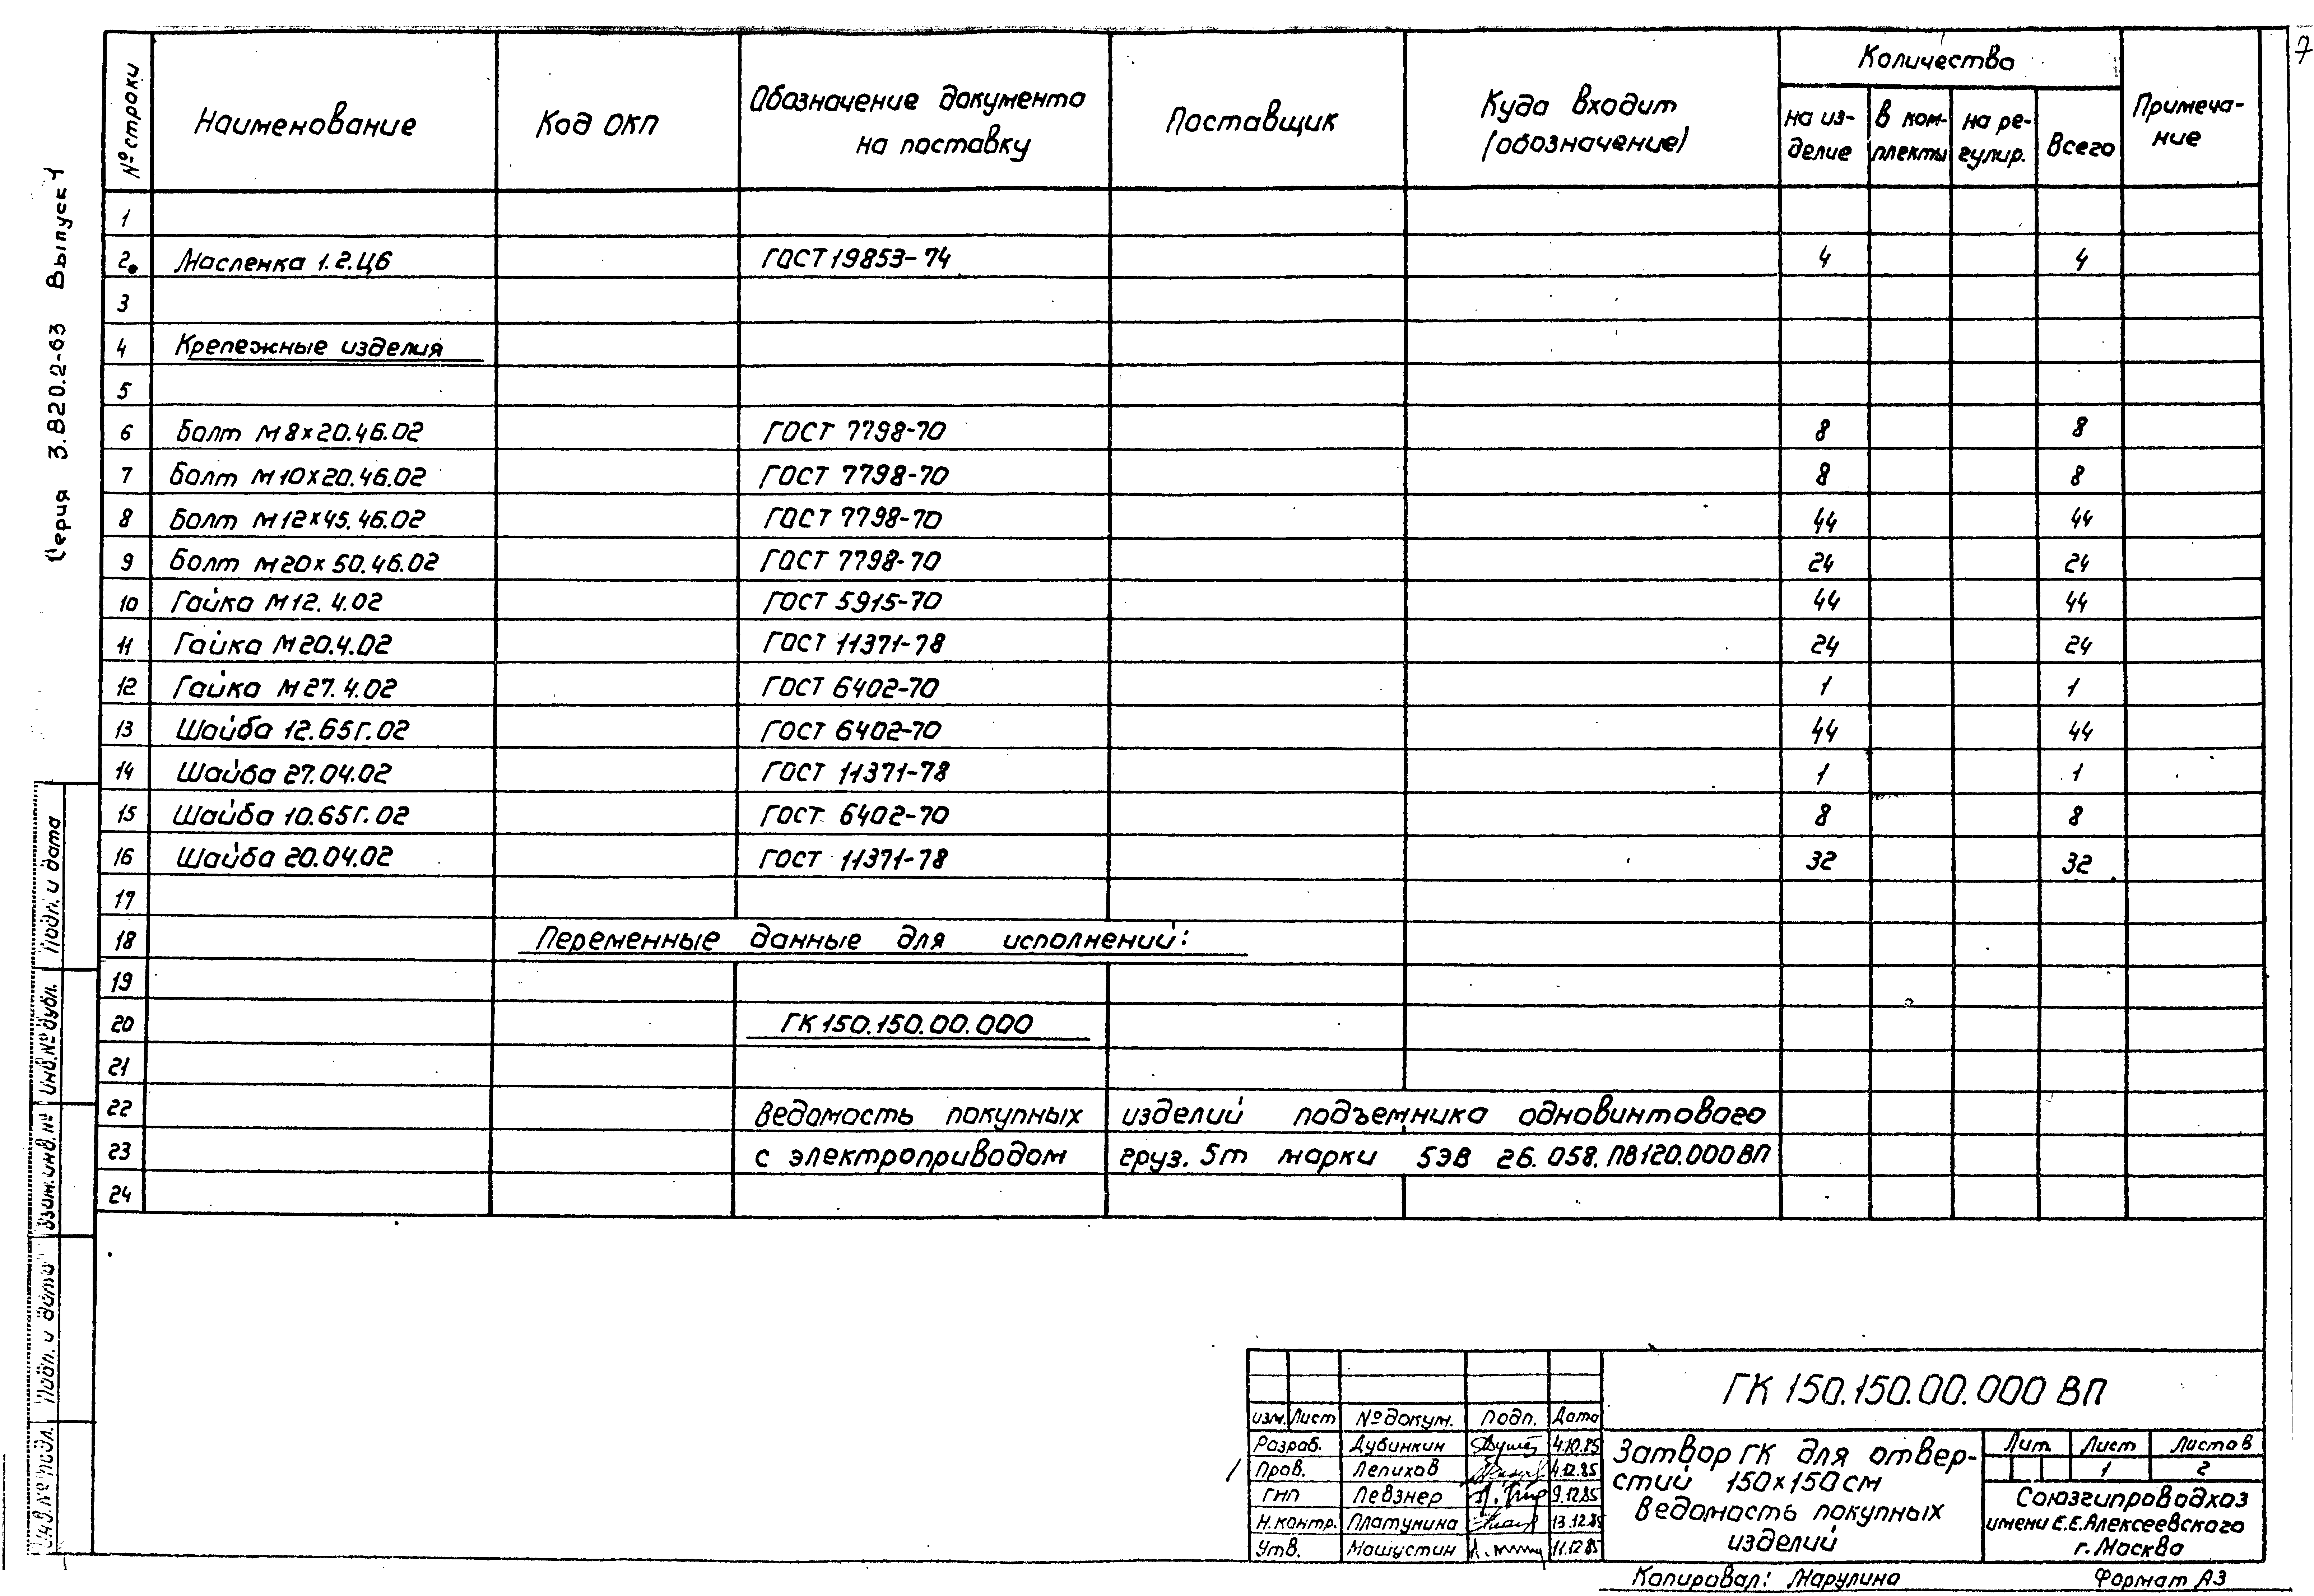 7
Серия 3.820.2-63 Выпуск 1
№ строки
Наименование
Код ОКП
Обозначение документа на поставку
Поставщик
Куда входит (обозначение)
Количество
на из-делие
в ком-плекты
на ре-гулир.
Всего
Примеча-ние
1
2 Масленка 1.2.Ц6 ГОСТ 19853-74 4 4
3
4 Крепежные изделия
5
6 Болт М8×20.46.02 ГОСТ 7798-70 8 8
7 Болт М10×20.46.02 ГОСТ 7798-70 8 8
8 Болт М12×45.46.02 ГОСТ 7798-70 44 44
9 Болт М20×50.46.02 ГОСТ 7798-70 24 24
10 Гайка М12.4.02 ГОСТ 5915-70 44 44
11 Гайка М20.4.02 ГОСТ 11371-78 24 24
12 Гайка М27.4.02 ГОСТ 6402-70 1 1
13 Шайба 12.65Г.02 ГОСТ 6402-70 44 44
14 Шайба 27.04.02 ГОСТ 11371-78 1 1
15 Шайба 10.65Г.02 ГОСТ 6402-70 8 8
16 Шайба 20.04.02 ГОСТ 11371-78 32 32
17
18 Переменные данные для исполнений:
19
20 ГК 150.150.00.000
21
22 Ведомость покупных изделий подъемника одновинтового
23 с электроприводом груз. 5т марки 5ЭВ 26.058.ПВ120.000ВП
24
Подп. и дата
Инв. № дубл.
Взам. инв. №
Подп. и дата
Инв. № подл.
ГК 150.150.00.000 ВП
Изм. Лист № докум. Подп. Дата
Разраб. Дубинкин 4.10.85
Пров. Лепихов 4.12.85
ГИП Левзнер 9.12.85
Н.контр. Платунина 13.12.85
Утв. Машустин 11.12.85
Затвор ГК для отвер-
стий 150×150 см
Ведомость покупных
изделий
Лит. Лист Листов
1 2
Союзгипроводхоз
имени Е.Е.Алексеевского
г. Москва
Копировал: Марулина Формат А3